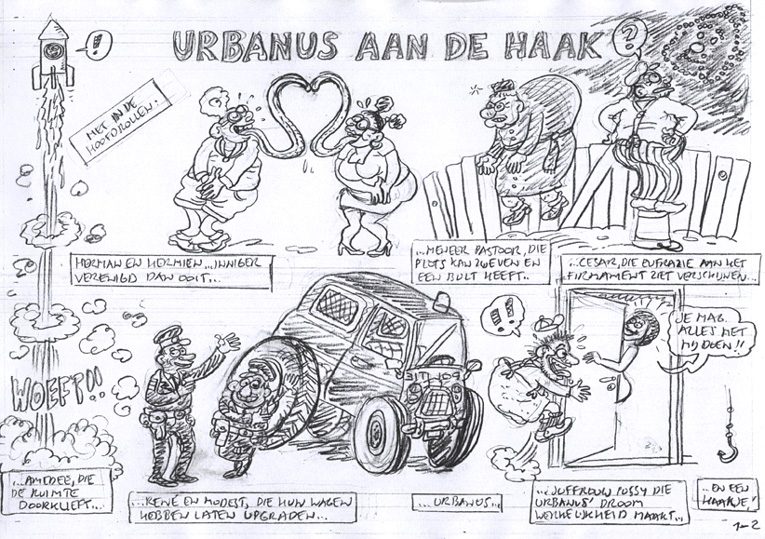 URBANUS AAN DE HAAK
!
?
MET IN DE
HOOFDROLLEN:
HERMAN EN HERMIEN... INNIGER
VERENIGD DAN OOIT...
...MENEER PASTOOR, DIE
PLOTS KAN ZWEVEN EN
EEN BULT HEEFT...
...CESAR, DIE EUFRAZIE AAN HET
FIRMAMENT ZIET VERSCHIJNEN...
WOEFT!!
POLITIE
!!
JE MAG
ALLES MET
MIJ DOEN!!
...AMEDEE, DIE
DE RUIMTE
DOORKLIEFT...
...RENÉ EN MODEST, DIE HUN WAGEN
HEBBEN LATEN UPGRADEN...
...URBANUS...
...JUFFROUW PUSSY DIE
URBANUS' DROOM
WERKELIJKHEID MAAKT...
...EN EEN
HAAKJE!
1-2